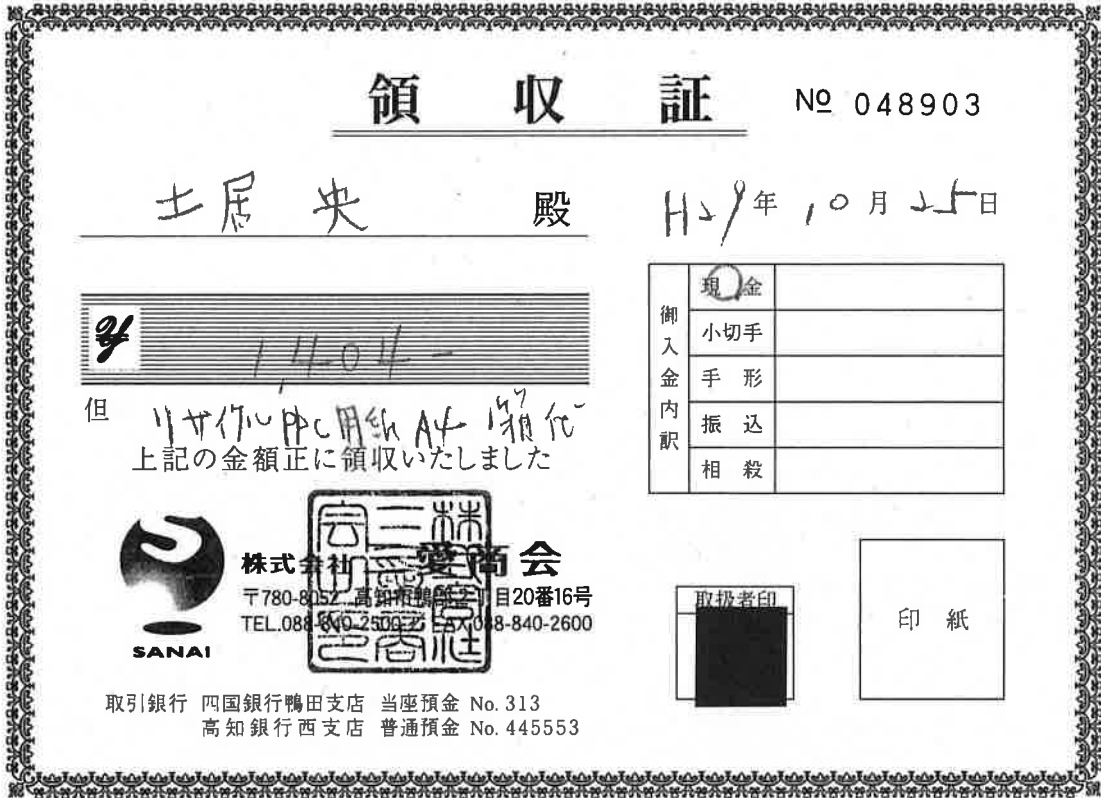 領 収 証
No 048903
土居 央 殿
H29年 10月 25日
¥ 1,404-
但 リサイクルPPC用紙 A4 1箱代
上記の金額正に領収いたしました
御入金内訳
現 金
小切手
手 形
振 込
相 殺
株式会社 三愛商会
〒780-8052 高知市鴨部2丁目20番16号
TEL.088-840-2500 FAX 088-840-2600
SANAI
取扱者印
印 紙
取引銀行 四国銀行鴨田支店 当座預金 No. 313
高知銀行西支店 普通預金 No. 445553